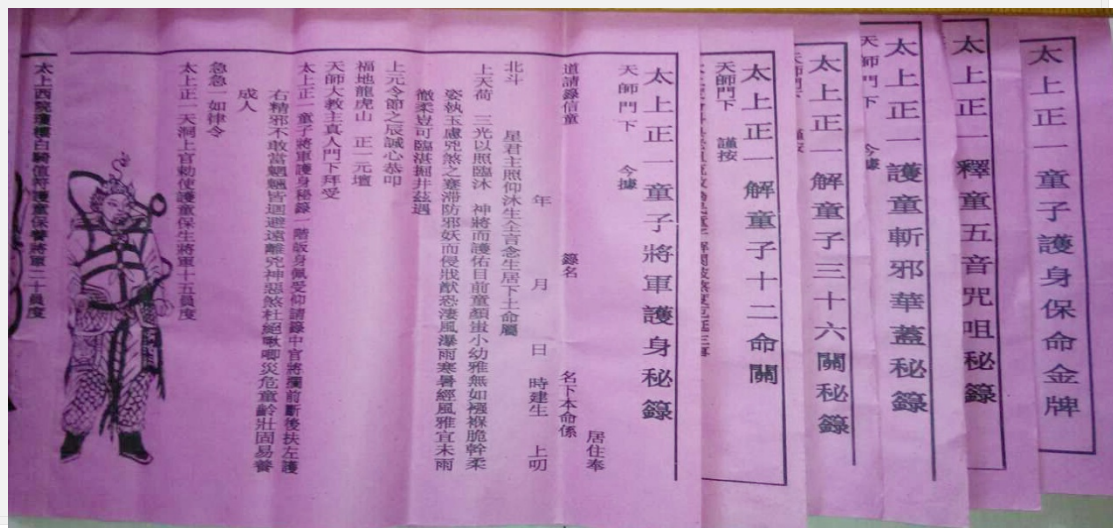 太上正一童子護身保命金牌
太上正一釋童五音咒咀秘籙
太上正一護童斬邪華蓋秘籙
天師門下 今據
太上正一解童子三十六關秘籙
太上正一解童子十二命關
天師門下 謹按
太上正一童子將軍護身秘籙
天師門下 今據
居住奉
道請籙信童 籙名 名下本命係
年 月 日 時建生 上叨
北斗 星君主照仰沐生全言念生居下土命屬
上天荷 三光以照臨沐 神將而護佑目前童顏蚩小幼雅無如襁褓脆幹柔
姿執玉慮兇煞之蹇滯防邪妖而侵戕猷恐淒風瀑雨寒暑經風雅宜未雨
徹柔豈可臨湛掘井茲遇
上元令節之辰誠心恭叩
福地龍虎山 正一元壇
天師大教主真人門下拜受
太上正一童子將軍護身秘籙一階版身佩受仰請籙中官將攔前斷後扶左護
右精邪不敢當魍魎皆迴避遠離兇神惡煞杜絕啾唧災危童齡壯固易養
成人
急急一如律令
太上正一天洞上官勅使護童保生將軍十五員度
太上西院瓊樓白騎值符護童保養將軍二十員度